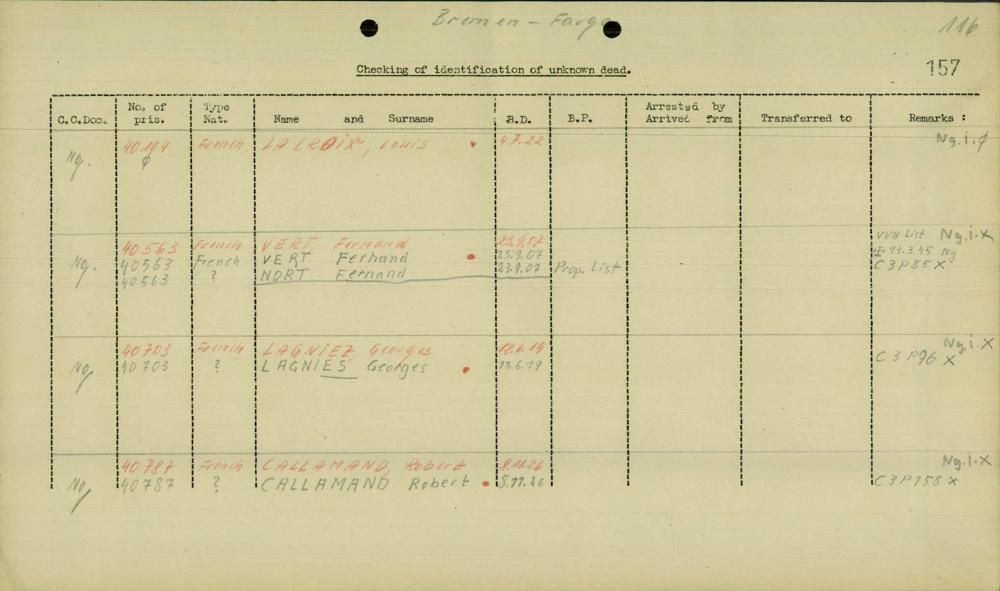 Bremen - Farge
116
157
Checking of identification of unknown dead.
C.C.Doc. No. of pris. Type Nat. Name and Surname B.D. B.P. Arrested by Arrived from Transferred to Remarks :
Ng. French LA CROIX, Louis 4.7.22 Ng.i.ø
40563 French VERT, Fernand 23.9.07 VVN List Ng.i.x
Ng. 40563 French VERT Fernand 23.9.07 19.3.45 Ng
40563 ? NORT Fernand 23.9.07 Prop. List C3P85 x
40703 French LAGNIEZ Georges Ng.i.x
Ng 40703 ? LAGNIES Georges 13.6.19 C3P96 x
40787 French CALLAMAND, Robert 8.11.26 Ng.i.x
Ng 40787 ? CALLAMAND Robert 8.11.26 C3P158 x